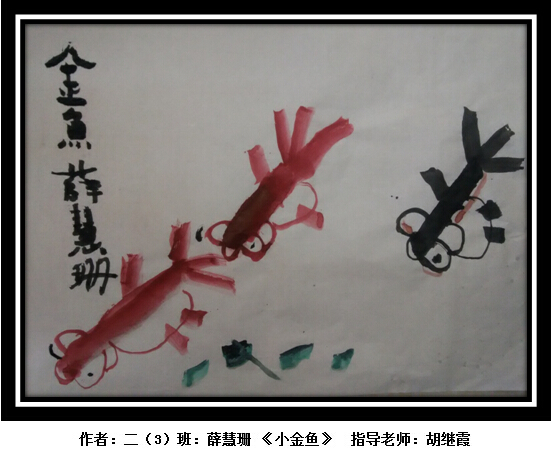 金魚 薛慧珊
作者：二（3）班：薛慧珊 《小金鱼》 指导老师：胡继霞